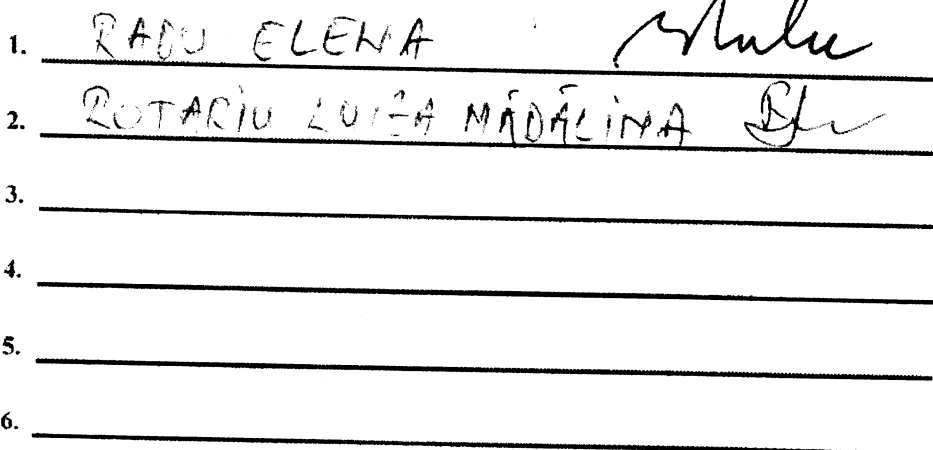 1. RADU ELENA
2. ROTARIU LUIZA MĂDĂLINA
3.
4.
5.
6.